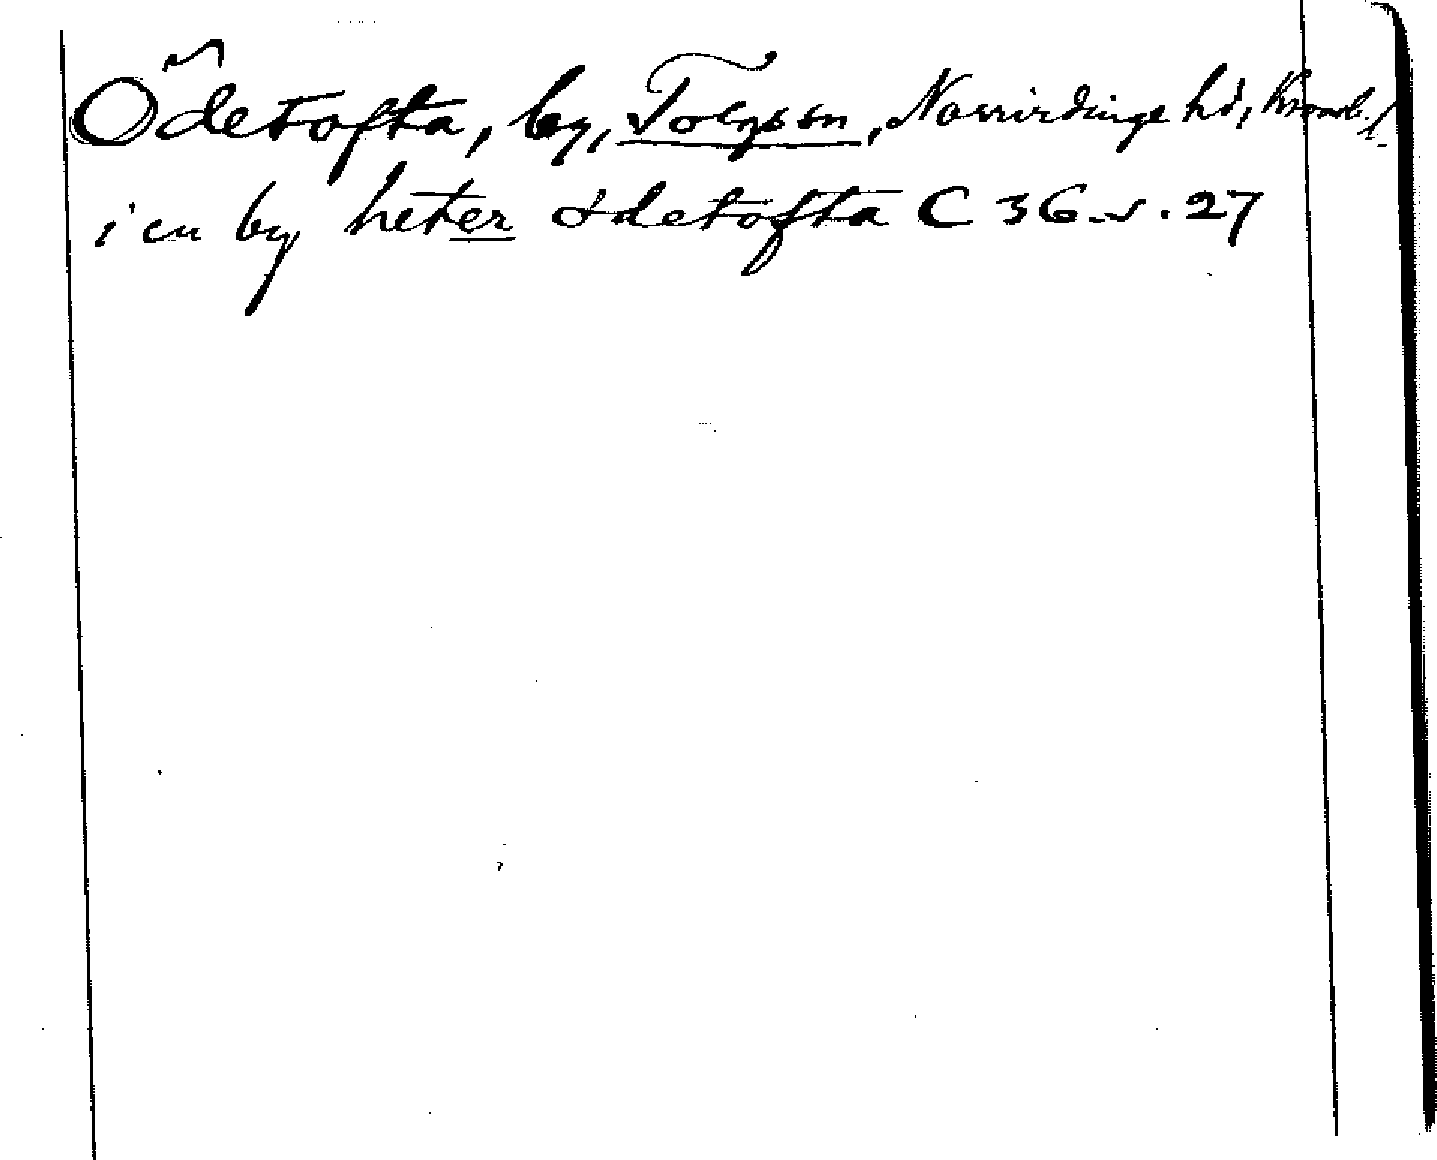 Ödetofta, by, Tolgs sn, Norrvidinge hd, Kronob. l.
i en by heter ødetofta C 36 s. 27